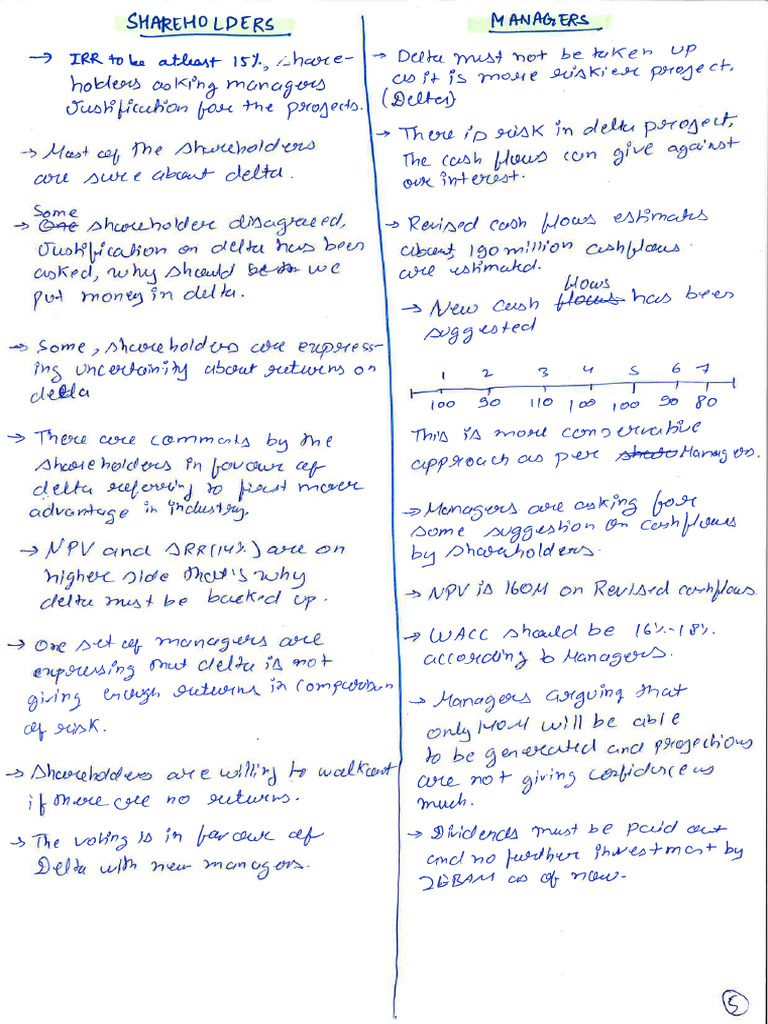 SHAREHOLDERS
→ IRR to be atleast 15%, share-
holders asking managers
Justification for the projects.
→ Most of the shareholders
are sure about delta.
Some
→ One shareholder disagreed,
Justification on delta has been
asked, why should we
put money in delta.
→ Some, shareholders are express-
ing uncertainity about returns on
delta
→ There are comments by the
shareholders in favour of
delta referring to first mover
advantage in industry.
→ NPV and IRR (14%) are on
higher side that's why
delta must be backed up.
→ One set of managers are
expressing that delta is not
giving enough returns in comparison
of risk.
→ Shareholders are willing to walkout
if there are no returns.
→ The voting is in favour of
Delta with new managers.
MANAGERS
→ Delta must not be taken up
as it is more riskier project.
(Delta)
→ There is risk in delta project,
The cash flows can give against
our interest.
→ Revised cash flows estimates
about, 190 million cashflows
are estimated.
flows
→ New cash flows has been
suggested
1 2 3 4 5 6 7
100 90 110 100 100 90 80
This is more conservative
approach as per Managers.
→ Managers are asking for
some suggestion on cashflows
by shareholders.
→ NPV is 160M on Revised cashflows.
→ WACC should be 16%-18%
according to Managers.
→ Managers arguing that
only will be able
to be generated and projections
are not giving confidence as
much.
→ Dividends must be paid out
and no further investment by
as of now.
5